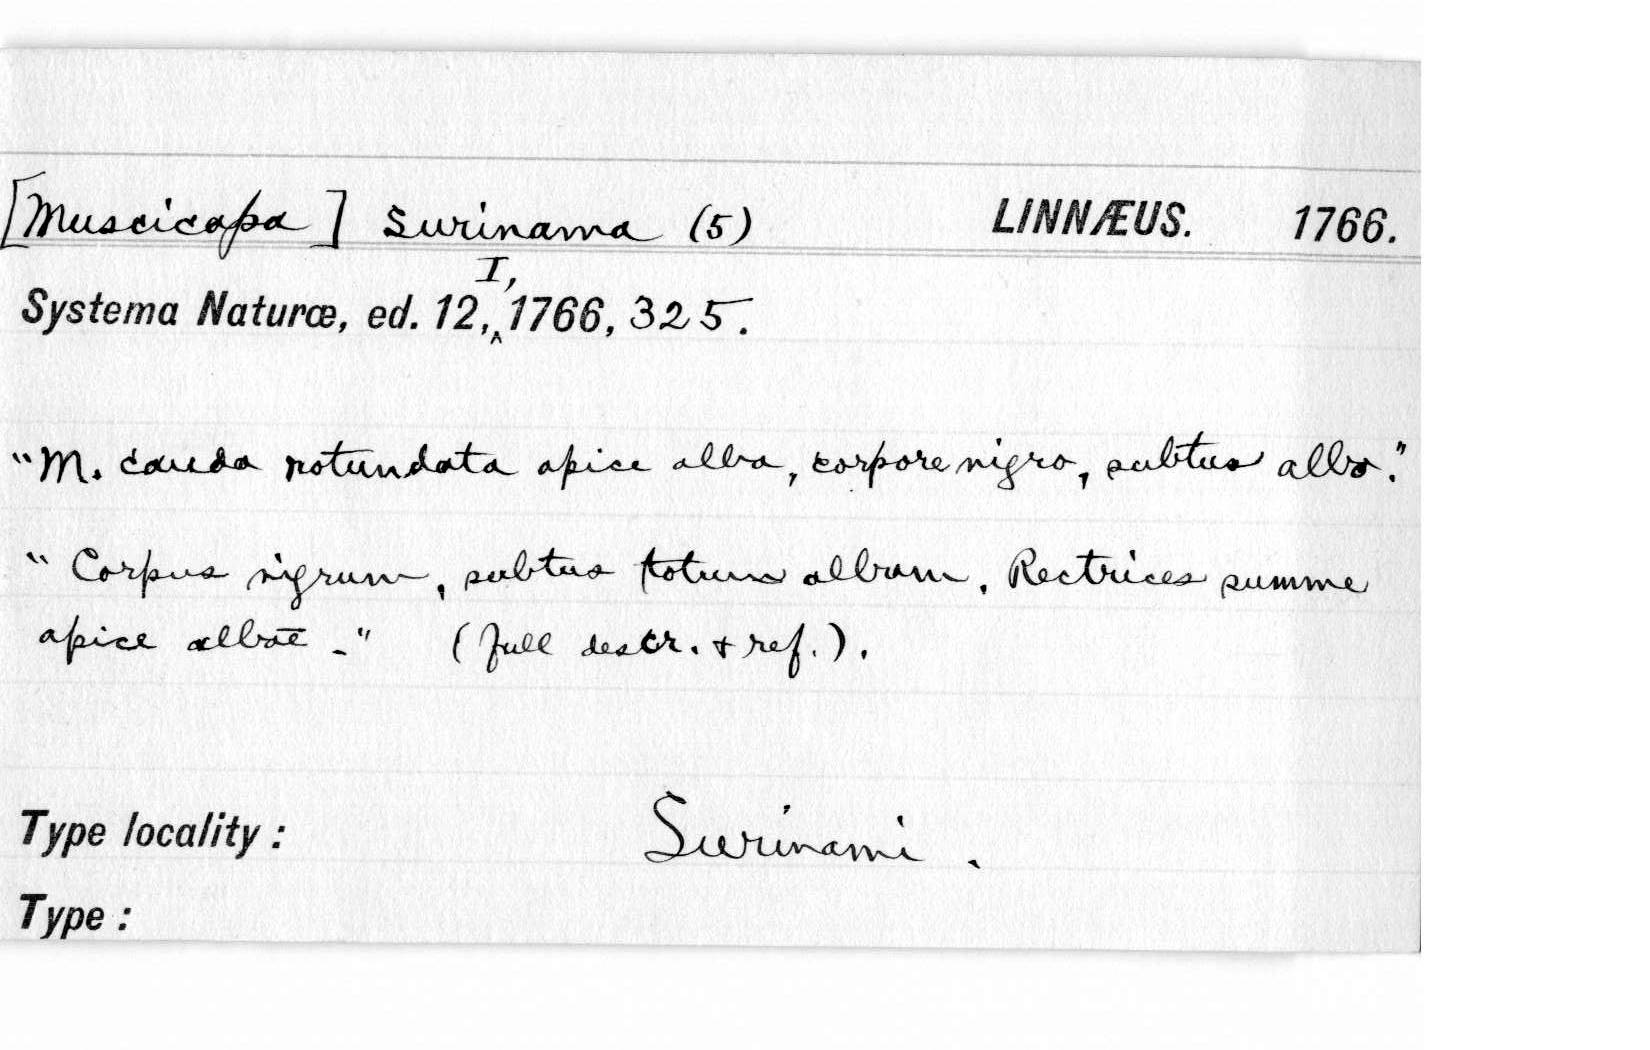 [Muscicapa] Surinama (5) LINNÆUS. 1766.
Systema Naturæ, ed. 12, I, 1766, 325.
"M. cauda rotundata apice alba, corpore nigro, subtus albo."
"Corpus nigrum, subtus totum album. Rectrices summe
apice albæ." (full descr. + ref.).
Type locality: Surinami.
Type: